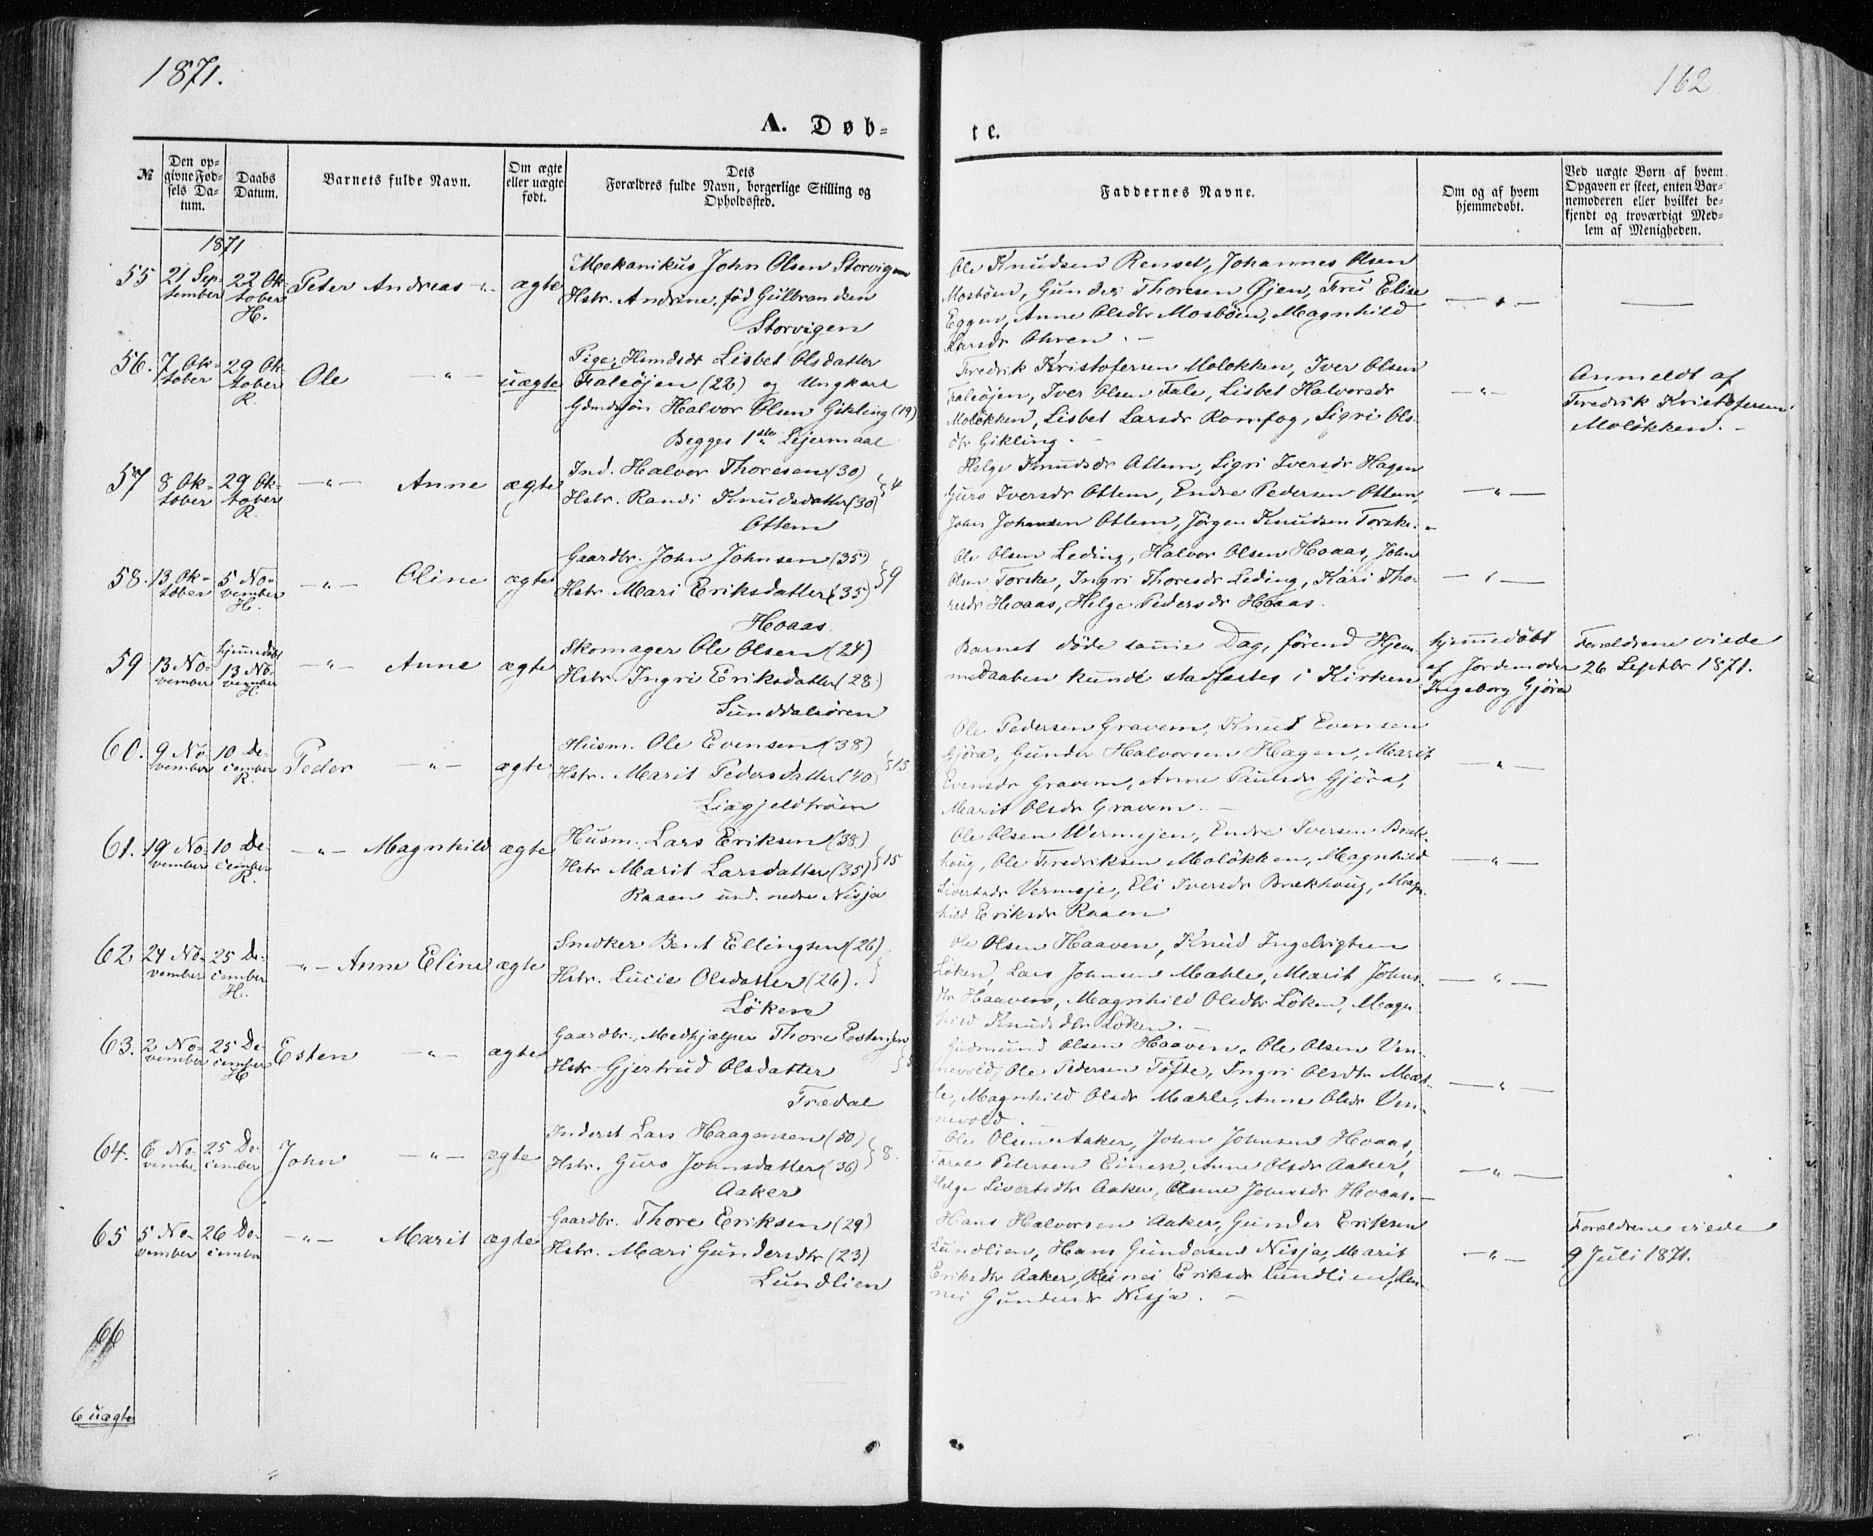 1871.
162
A. Døb-
te.
№
Den op-
givne Fød-
sels Da-
tum.
Daabs
Datum.
Barnets fulde Navn.
Om ægte
eller uægte
født.
Dets
Forældres fulde Navn, borgerlige Stilling og
Opholdssted.
Faddernes Navne.
Om og af hvem
hjemmedøbt.
Ved uægte Børn af hvem
Opgaven er skeet, enten Bar-
nemoderen eller hvilket be-
kjendt og troværdigt Med-
lem af Menigheden.
1871
55
21 Sep-
tember
22 Ok-
tober
H.
Peter Andreas -"-
ægte
Mekanikus John Olsen Storvigen
Hstr. Andrine, fød Gulbrandsen
Storvigen
Ole Knudsen Renset, Johannes Olsen
Mosbøen, Gunder Thoresen Øjen, Fru Elise
Eggen, Anne Olsdtr Mosbøen, Magnhild
Larsdr Ohren. -
— " —
——
56.
7 Ok-
tober
29 Ok-
tober
R.
Ole — " —
uægte
Pige, Lisbet Olsdatter
Faleøjen (22) og Ungkarl
Halvor Olsen Gikling (19)
Begges 1ste Lejermaal
Fredrik Kristofersen Moløkken, Iver Olsen
Faleøjen, Iver Olsen Fale, Lisbet Halvorsdr
Moløkken, Lisbet Larsdr Romfog, Sigri Ols-
dtr Gikling. -
-"-
Anmeldt af
Fredrik Kristofersen
Moløkken. -
57
8 Ok-
tober
29 Ok-
tober
R.
-"- Anne
ægte
Ind. Halvor Thoresen (30)
Hstr. Randi Knudsdatter (30) } 4
Ottem
Helge Knudsdr Ottem, Sigri Iversdr Hagen
Guro Iversdr Ottem, Endre Pedersen Ottem,
John Johnsen Ottem, Jørgen Knudsen Torske. -
— " —
58.
13 Ok-
tober
5 No-
vember
H.
-"- Oline
ægte
Gaardbr. John Johnsen (35)
Hstr Mari Eriksdatter (35) } 9
Hoaas.
Ole Olsen Leding, Halvor Olsen Hoaas, John
Olsen Torske, Ingri Thoresdr Leding, Kari Tho-
resdr Hoaas, Helge Pedersdr Hoaas.
— " —
59
13 No-
vember
hjemmedøbt
13 No-
vember
H.
-"- Anne
ægte
Skomager Ole Olsen (24)
Hstr. Ingri Eriksdatter (28)
Sunddalsøren
Barnet døde samme Dag, førend Hjem-
medaaben kunde stadfæstes i Kirken
hjemmedøbt
af Jordemoder
Ingeborg Gjøra
Forældrene viede
26 Septbr 1871.
60.
9 No-
vember
10 De-
cember
R.
Peder — " —
ægte
Husm. Ole Evensen (38)
Hstr. Marit Pedersdatter (40) } 13
Liagjeldtrøen
Ole Pedersen Gravem, Knud Evensen
Gjøra, Gunder Halvorsen Hagen, Marit
Evensdr Gravem, Anne Paulsdr Gjøra,
Marit Olsdr Gravem. -
— " —
61.
19 No-
vember
10 De-
cember
R.
-"- Magnhild
ægte
Husm. Lars Eriksen (38)
Hstr Marit Larsdatter (35) } 15
Raaen und. nedre Nisja
Ole Olsen Wermejen, Endre Iversen Bræk-
houg, Ole Fredriksen Moløkken, Magnhild
Sivertsdr Vermeje, Eli Iversdr Brækhoug, Magn-
hild Eriksdr Raaen
— " —
62
24 No-
vember
25 De-
cember
H.
-"- Anne Eline
ægte
Snedker Bent Ellingsen (26)
Hstr. Lucie Olsdatter (26). }
Løken
Ole Olsen Haaven, Knud Ingebrigtsen
Løken, Lars Johnsen Mæhle, Marit Johns-
dtr Haaven, Magnhild Olsdtr Løken, Magn-
hild Knudsdtr Løken. -
— " —
63.
2 No-
vember
25 De-
cember
H
Esten — " —
ægte
Gaardbr. Medhjælper Thore Estensen
Hstr Gjertrud Olsdatter
Tredal
Gudmund Olsen Haaven, Ole Olsen Ven-
nevold, Ole Pedersen Tofte, Ingri Olsdtr Mæh-
le, Magnhild Olsdr Mæhle, Anne Olsdr Ven-
nevold.
— " —
64.
6 No-
vember
25 De-
cember
John — " —
ægte
Inderst Lars Haagensen (50)
Hstr. Guro Johnsdatter (36) } 8.
Aaker
Ole Olsen Aaker, John Johnsen Hoaas,
Petersen Einess, Anne Olsdr Aaker,
Helge Sivertsdtr Aaker, Anne Johnsdr Hoaas. -
— " —
65
5 No-
vember
26 De-
cember
-"- Marit
ægte
Gaardbr. Thore Eriksen (29)
Hstr. Mari Gundersdtr (23)
Lundlien
Hans Halvorsen Aaker, Gunder Eriksen
Lundlien, Hans Gundersen Nisja, Marit
Eriksdtr Aaker, Eriksdr Lundlien,
Gundersdr Nisja. -
— " —
Forældrene viede
9 Juli 1871.
66
6 uægte